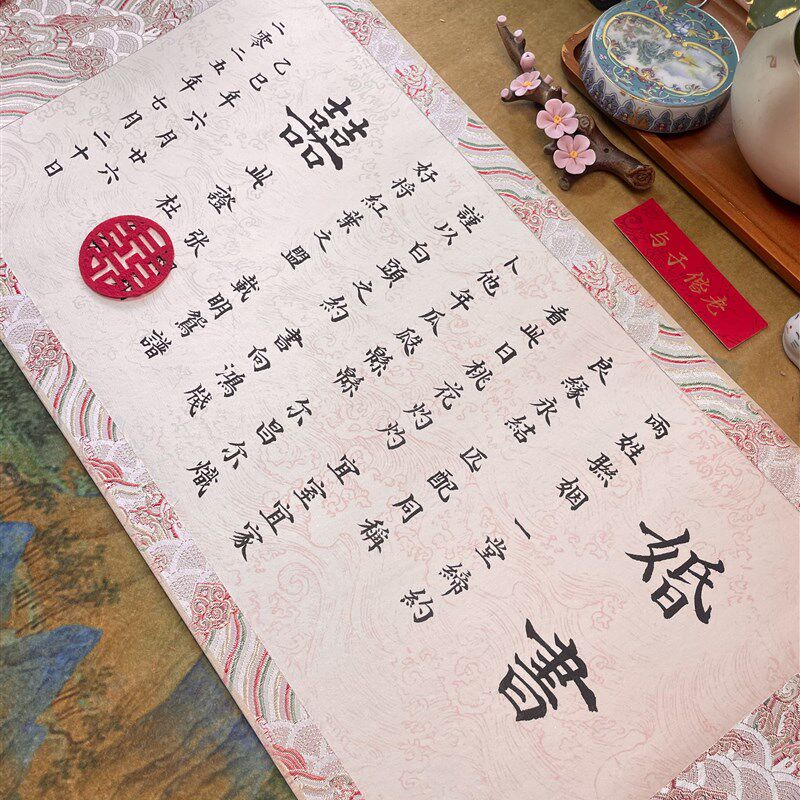 婚書
兩姓聯姻 一堂締約
良緣永結 匹配同稱
看此日桃花灼灼 宜室宜家
卜他年瓜瓞緜緜 尔昌尔熾
謹以白頭之約 書向鴻牋
好將紅葉之盟 載明鴛譜
此證
囍
張
杜
乙巳年六月廿六
二零二五年七月二十日
与子偕老